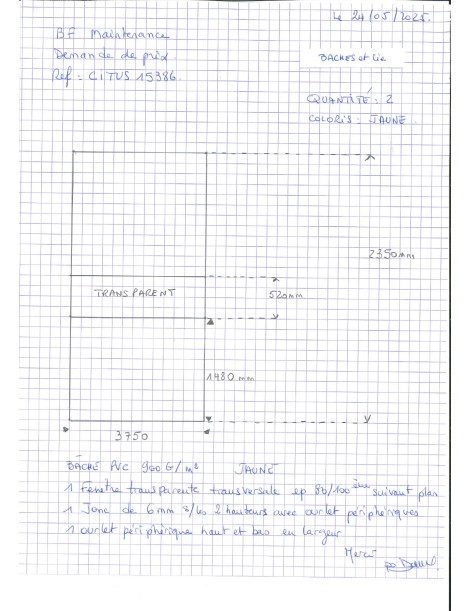 Le 24/05/2025.
BF Maintenance
Demande de prix.
BACHES et Cie
Réf : CITUS 15386.
QUANTITÉ : 2
COLORIS : JAUNE.
2350mm
TRANSPARENT
520mm
1480 mm
3750
BÂCHE PVC 900 G/m² JAUNE
1 Fenêtre transparente transversale ep 80/100 ème suivant plan
1 Jonc de 6mm s/les 2 hauteurs avec ourlet périphériques
1 ourlet périphérique haut et bas en largeur
Merci